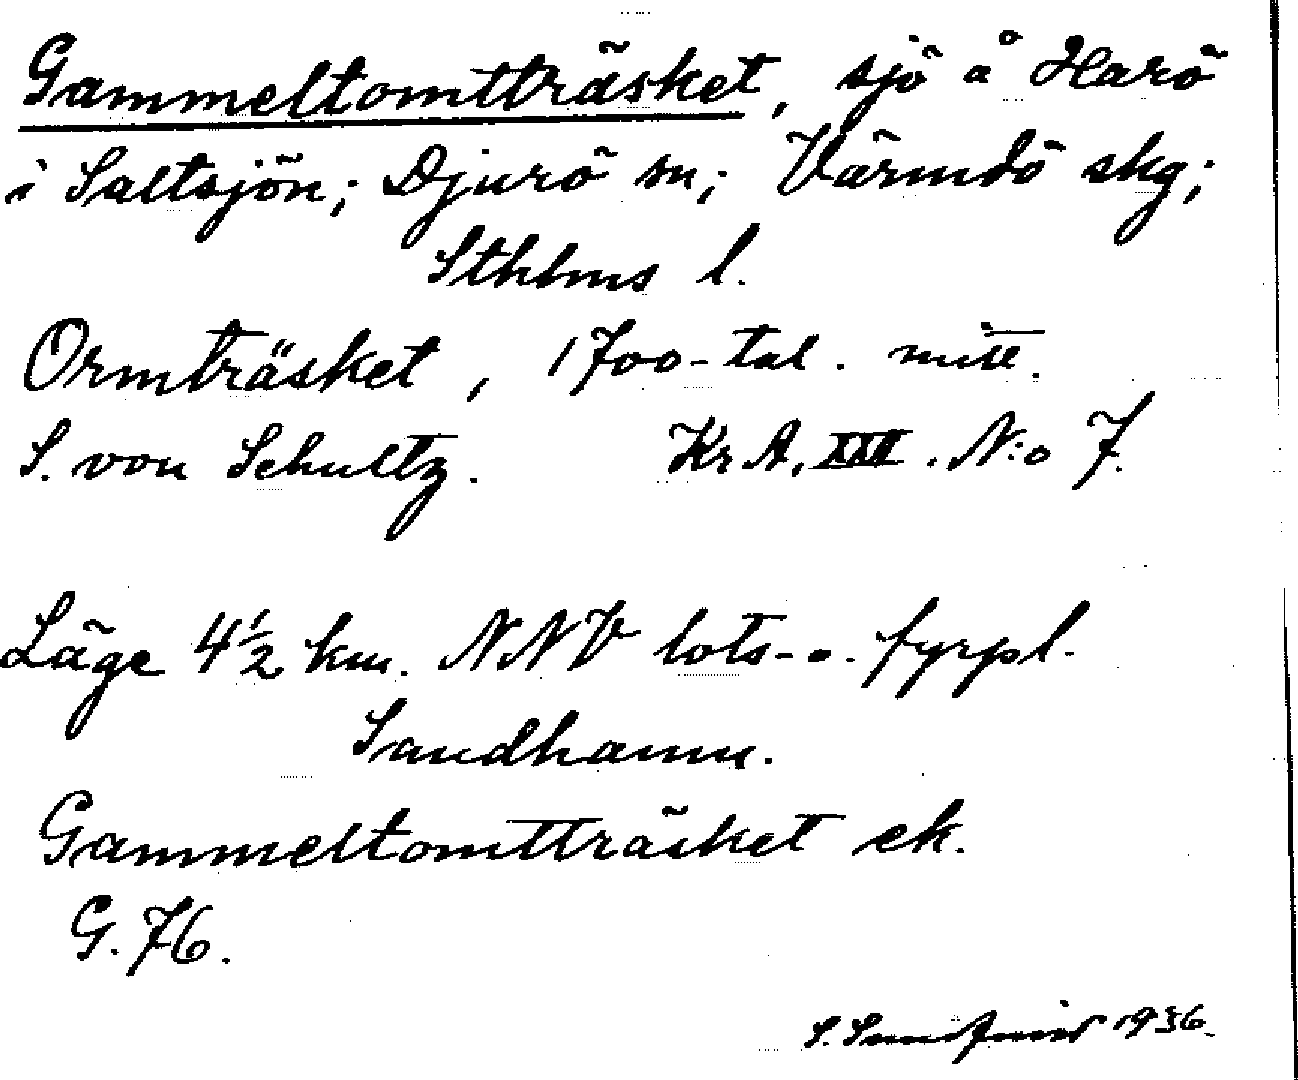 Gammeltomtträsket, sjö å Harö
i Saltsjön; Djurö sn; Värmdö skg;
Sthlms l.
Ormträsket, 1700-tal. mitt.
S. von Schultz. Kr A, XXII. N:o 7.
Läge 4½ km. NNV lots- o. fyrpl.
Sandhamn.
Gammeltomtträsket ek.
G. 76.
S. 1936.